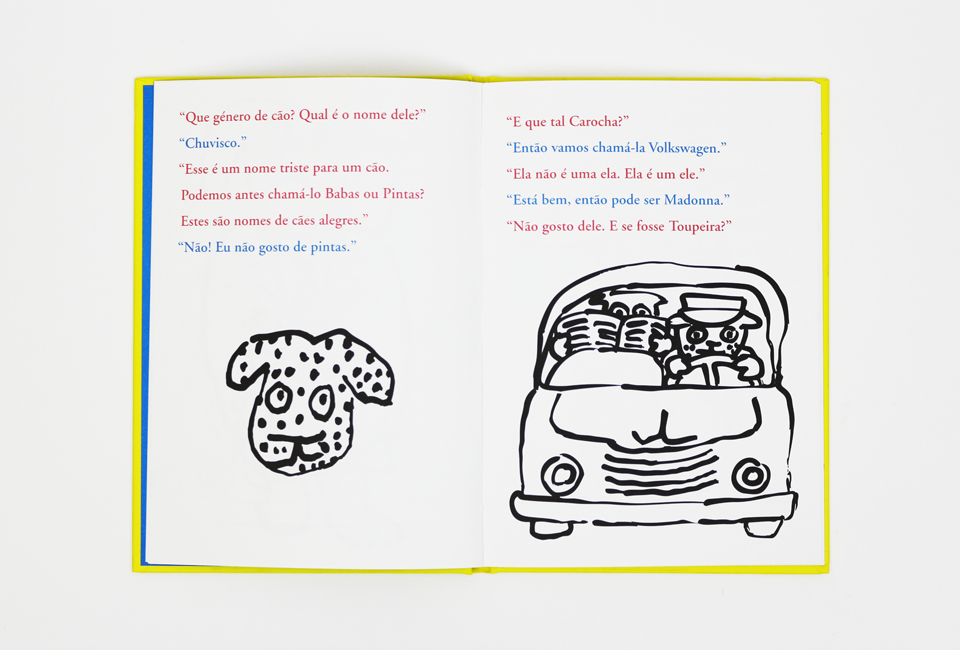 “Que género de cão? Qual é o nome dele?”
“Chuvisco.”
“Esse é um nome triste para um cão.
Podemos antes chamá-lo Babas ou Pintas?
Estes são nomes de cães alegres.”
“Não! Eu não gosto de pintas.”
“E que tal Carocha?”
“Então vamos chamá-la Volkswagen.”
“Ela não é uma ela. Ela é um ele.”
“Está bem, então pode ser Madonna.”
“Não gosto dele. E se fosse Toupeira?”